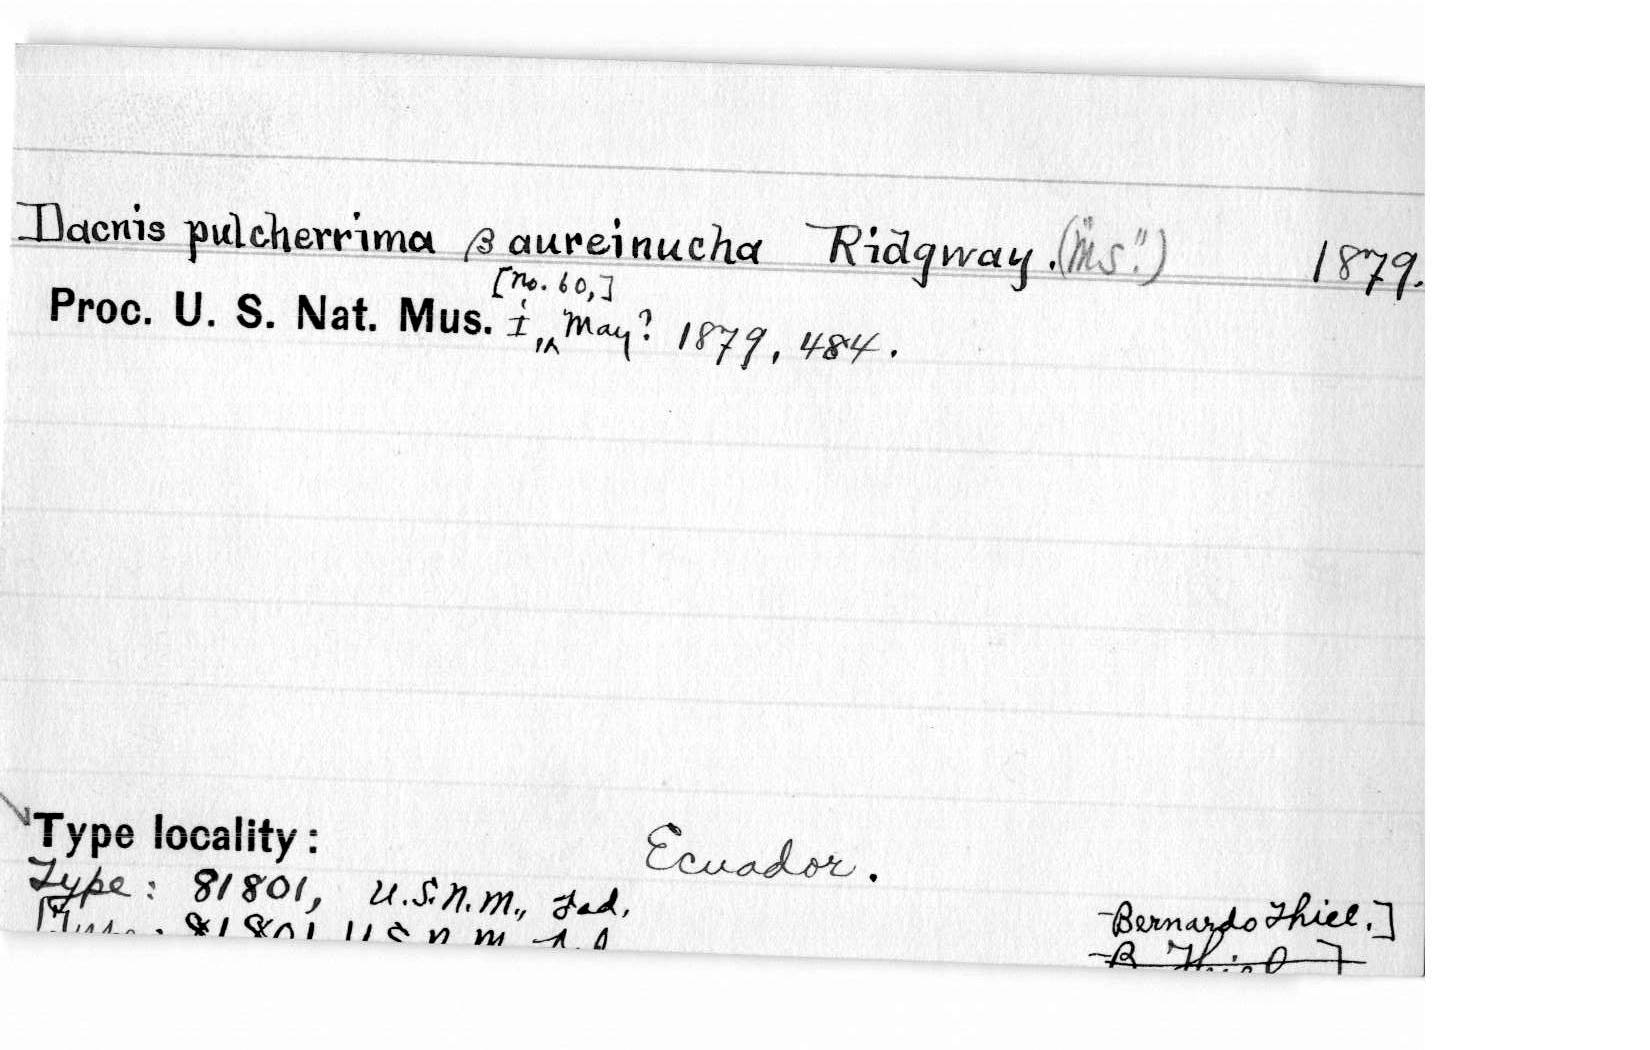 Dacnis pulcherrima β aureinucha Ridgway. ("Ms.") 1879.
[no. 60,]
Proc. U. S. Nat. Mus. I, May? 1879, 484.
Type locality: Ecuador.
Type: 81801, U.S.N.M., Bernardo Thiel.]
[Type: 81801 U.S.N.M. B. Thiel]